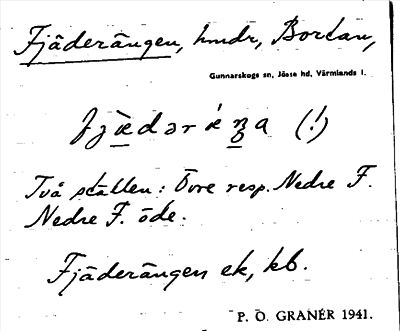 Fjäderängen, hmdr, Bordan,
Gunnarskogs sn, Jösse hd, Värmlands l.
(!)
Två ställen: Övre resp. Nedre F.
Nedre F. öde.
Fjäderängen ek, kb.
P. O. GRANÉR 1941.